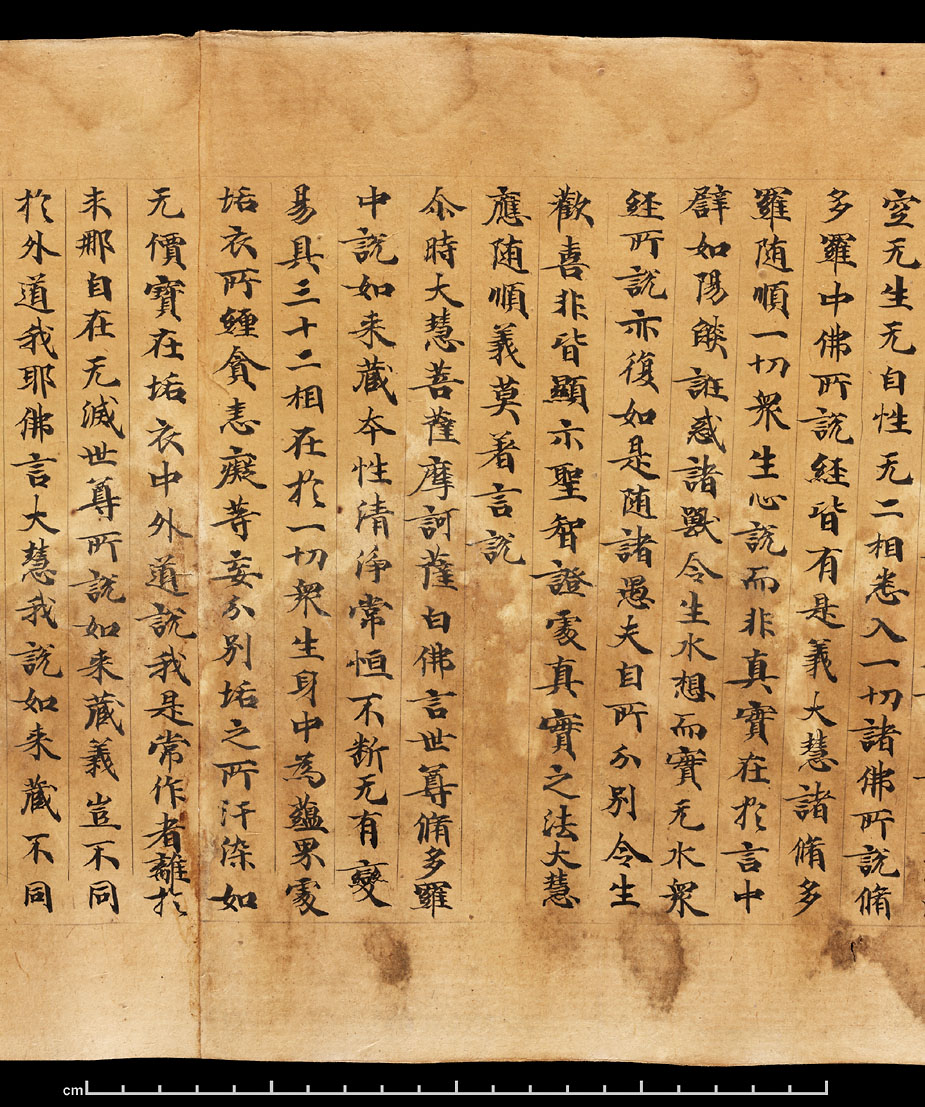 空无生无自性无二相悉入一切諸佛所說脩
多羅中佛所說經皆有是義大慧諸脩多
羅随順一切衆生心說而非真實在於言中
譬如陽餤誑惑諸獸令生水想而實无水衆
經所說亦復如是随諸愚夫自所分別令生
歡喜非皆顯示聖智證處真實之法大慧
應随順義莫著言說
尒時大慧菩薩摩訶薩白佛言世尊脩多羅
中說如来藏本性清淨常恒不断无有變
易具三十二相在於一切衆生身中為蘊界處
垢衣所纏貪恚癡等妄分別垢之所汙染如
无價寶在垢衣中外道說我是常作者離於
求那自在无滅世尊所說如来藏義豈不同
於外道我耶佛言大慧我說如来藏不同